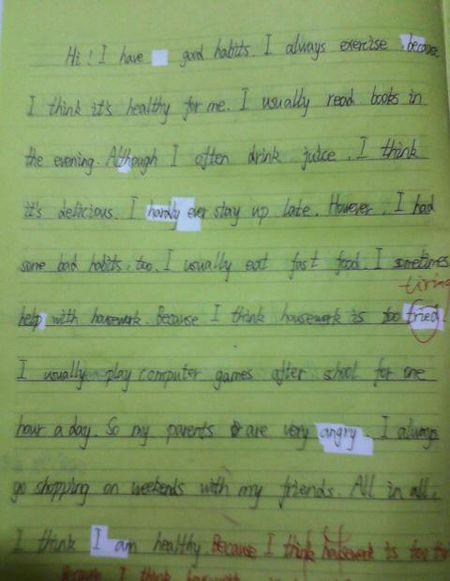 Hi! I have good habits. I always exercise because
I think it's healthy for me. I usually read books in
the evening. Although I often drink juice. I think
it's delicious. I hardly ever stay up late. However, I had
some bad habits, too. I usually eat fast food. I sometimes
tiring
help with housework. Because I think housework is too fried.
I usually play computer games after school for one
hour a day. So my parents are very angry. I always
go shopping on weekends with my friends. All in all,
I think I am healthy. Because I think housework is too
I think